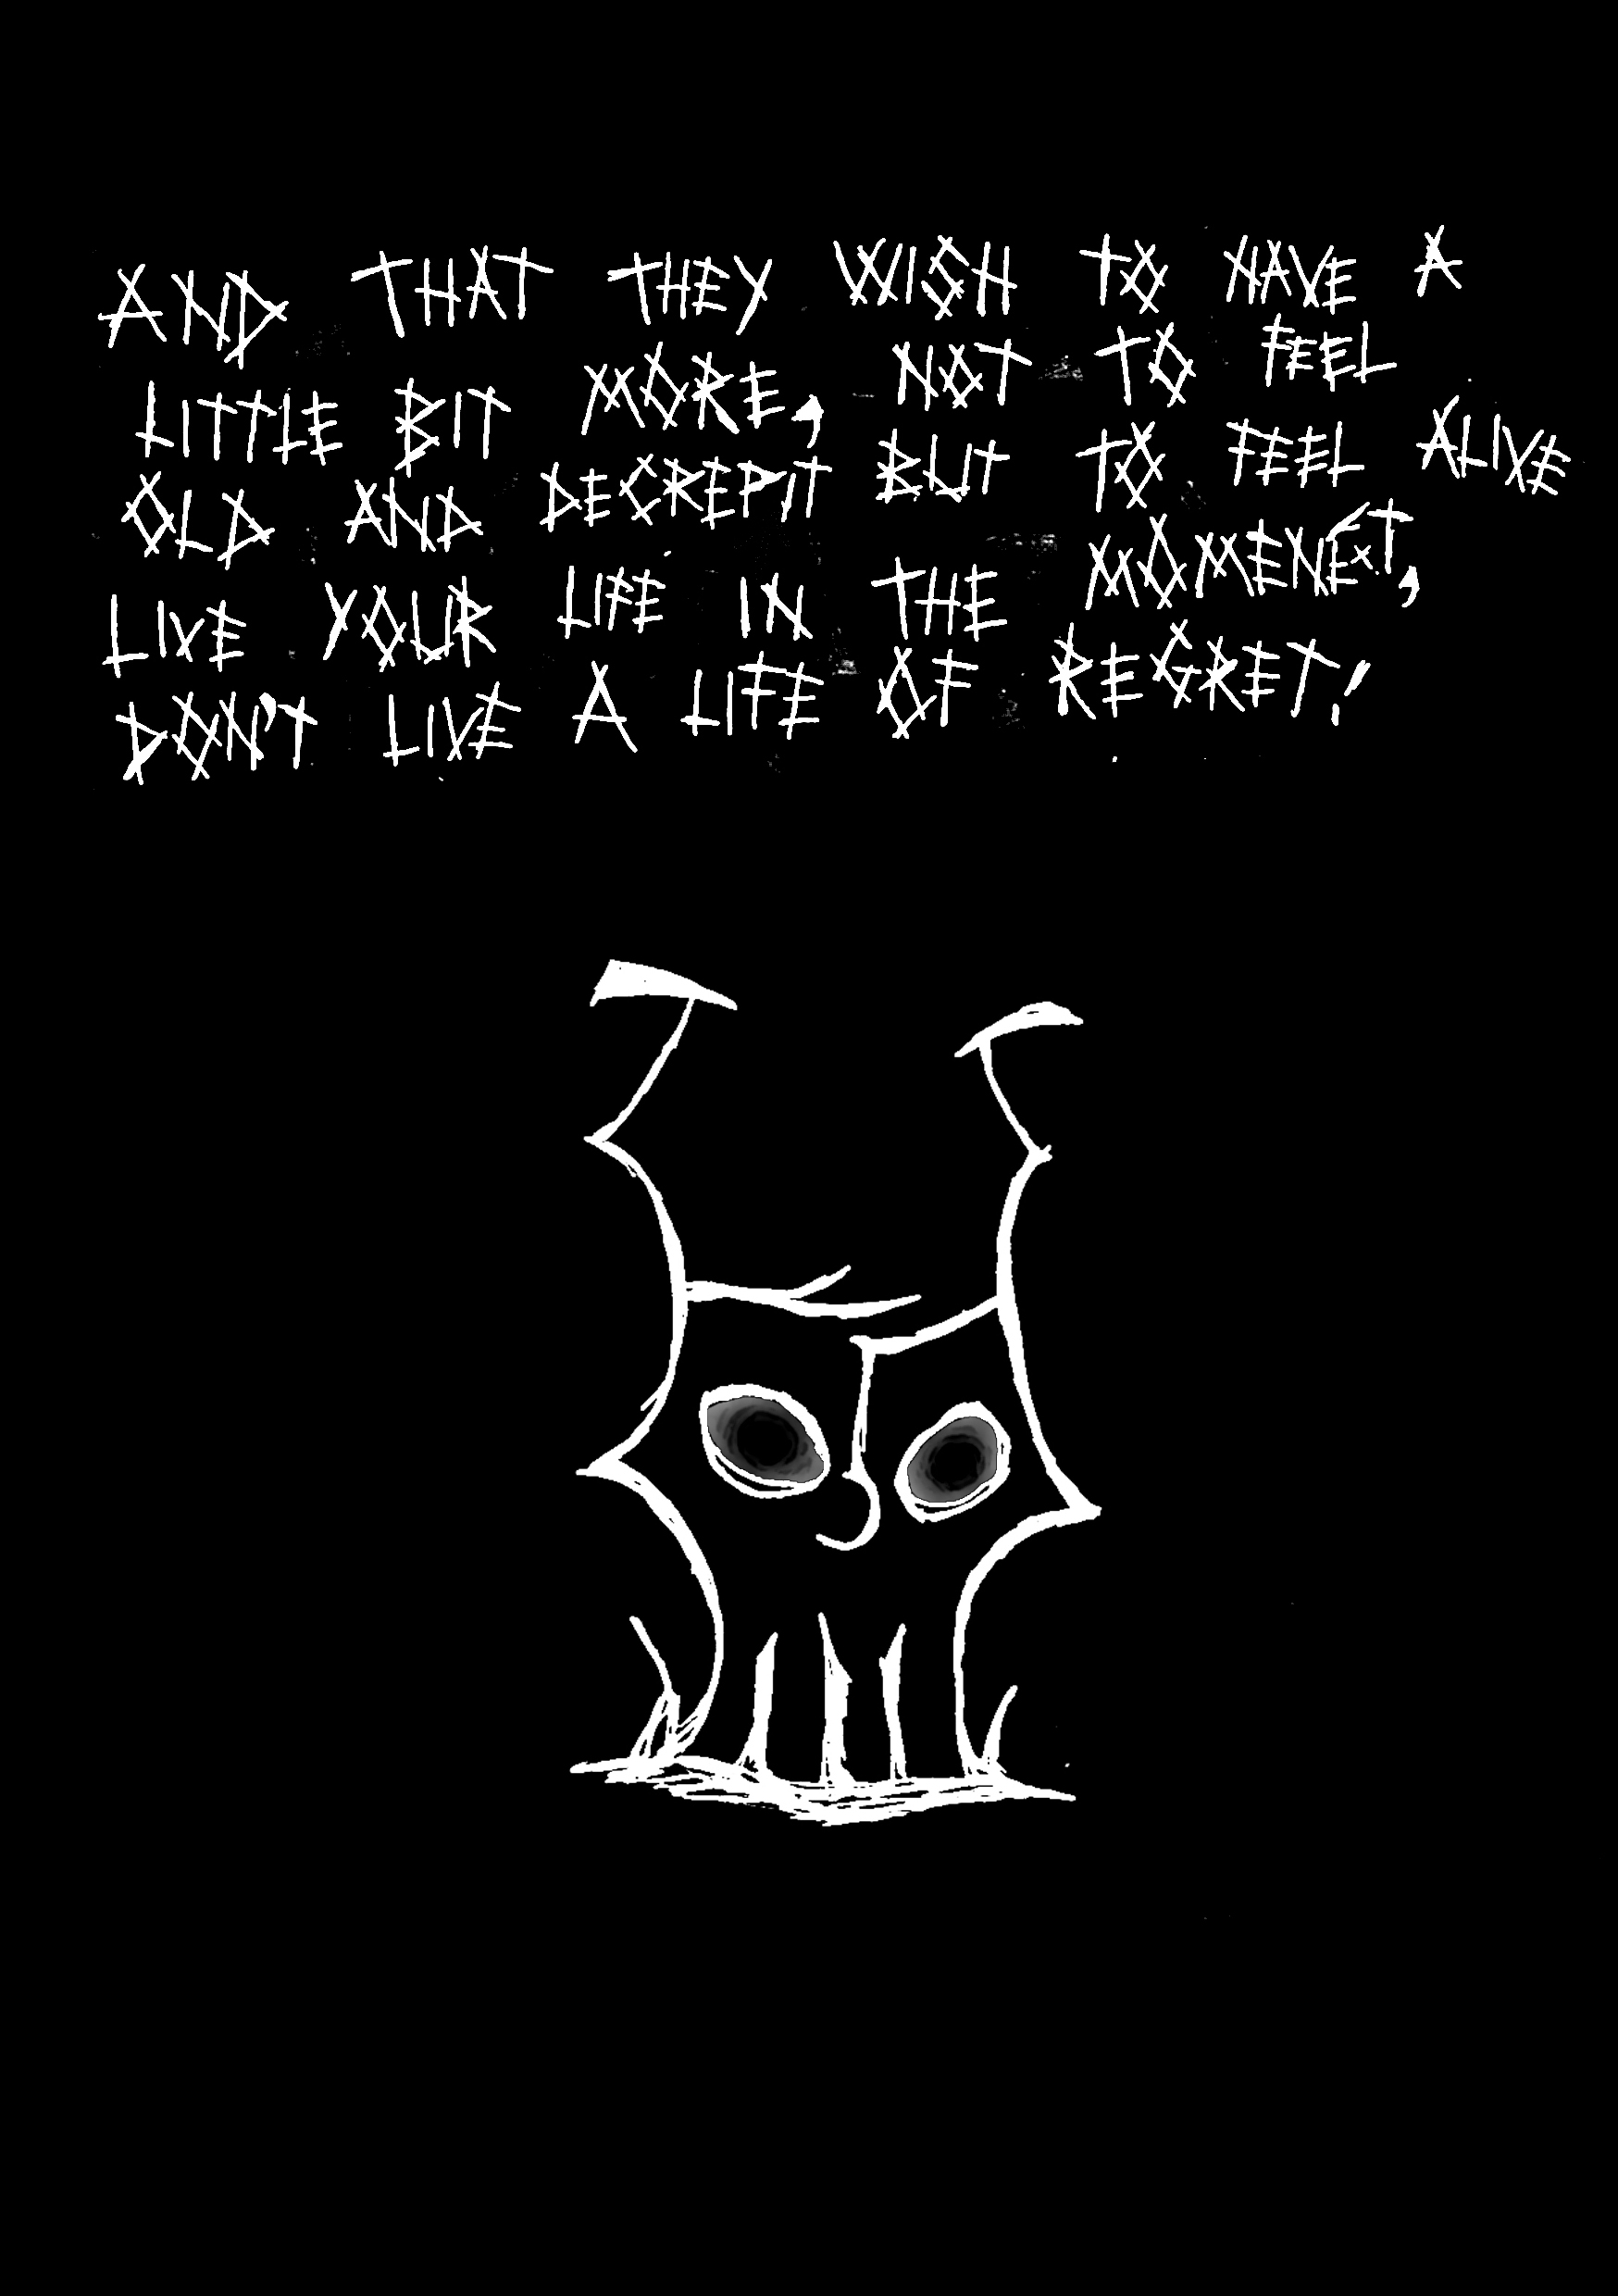 AND THAT THEY WISH TO HAVE A
LITTLE BIT MORE, NOT TO FEEL
OLD AND DECREPIT BUT TO FEEL ALIVE
LIVE YOUR LIFE IN THE MOMENT,
DON'T LIVE A LIFE OF REGRET!